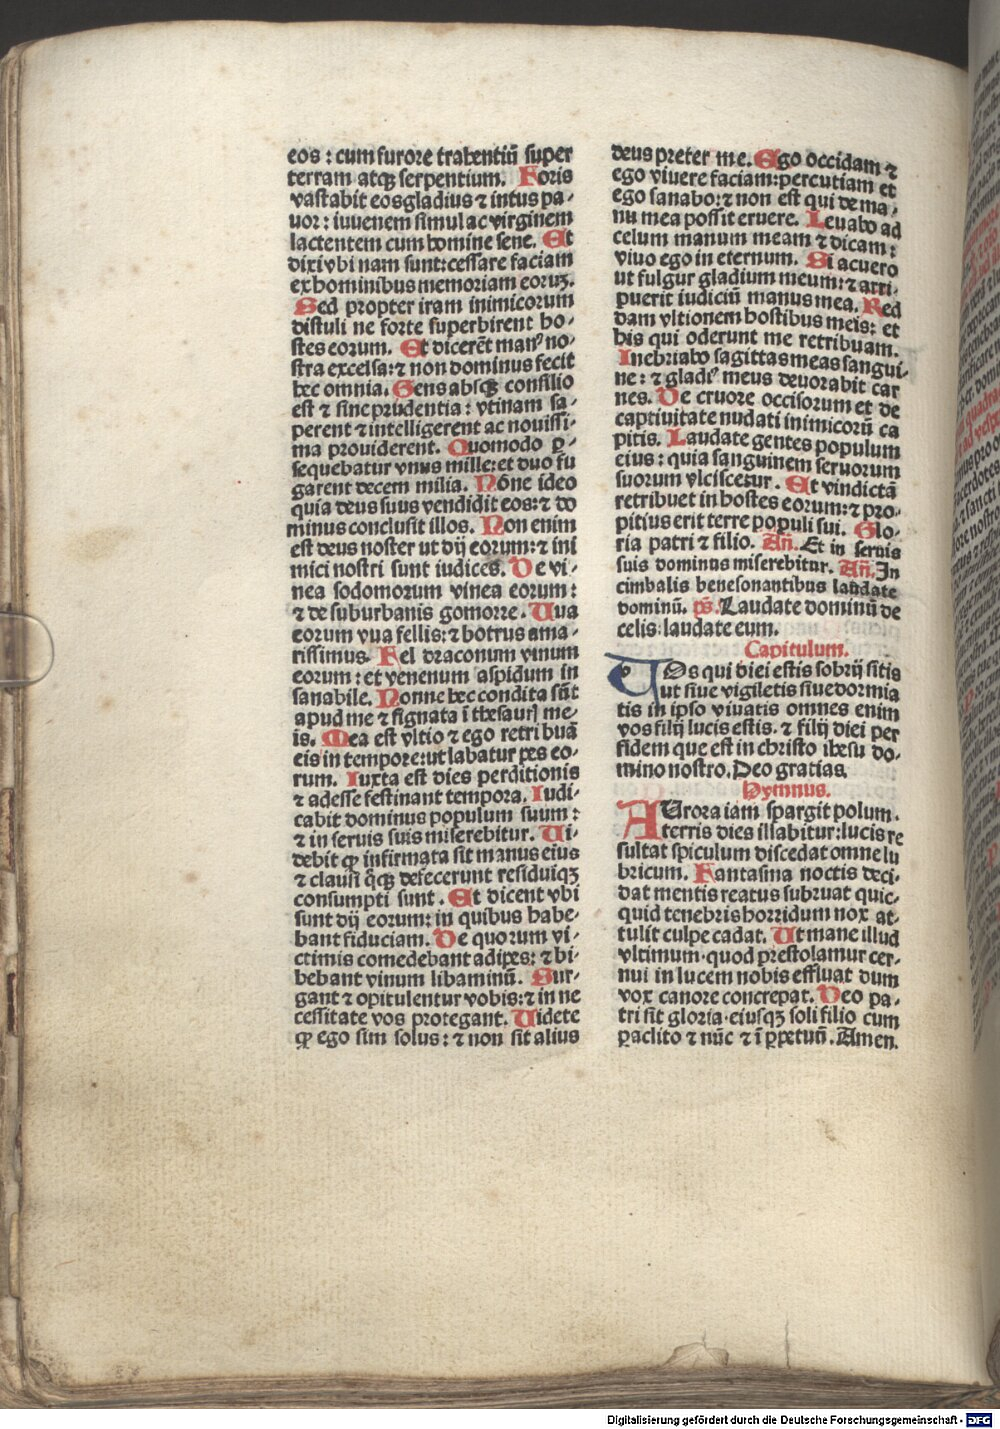 eos : cum furore trahentiū super
terram atqꝫ serpentium. Foris
vastabit eos gladius ⁊ intus pa⸗
uor : iuuenem simul ac virginem
lactentem cum homine sene. Et
dixi vbi nam sunt: cessare faciam
ex hominibus memoriam eorūꝫ.
Sed propter iram inimicorum
distuli ne forte superbirent ho⸗
stes eorum. Et dicerēt manꝰ no⸗
stra excelsa: ⁊ non dominus fecit
hec omnia. Gens absqꝫ consilio
est ⁊ sine prudentia : vtinam sa⸗
perent ⁊ intelligerent ac nouissi⸗
ma prouiderent. Quomodo ꝑ⸗
sequebatur vnus mille: et duo fu
garent decem milia. Nōne ideo
quia deus suus vendidit eos: ⁊ do
minus conclusit illos. Non enim
est deus noster ut dij eorum: ⁊ ini
mici nostri sunt iudices. De vi⸗
nea sodomorum vinea eorum :
⁊ de suburbanis gomorre. Uua
eorum vua fellis: ⁊ botrus ama⸗
rissimus. Fel draconum vinum
eorum : et venenum aspidum in
sanabile. Nonne hec condita sūt
apud me ⁊ signata ī thesauris me⸗
is. Mea est vltio ⁊ ego retribuā
eis in tempore: ut labatur pes eo⸗
rum. Iuxta est dies perditionis
⁊ adesse festinant tempora. Iudi⸗
cabit dominus populum suum :
⁊ in seruis suis miserebitur. Ui⸗
debit ꝙ infirmata sit manus eius
⁊ clausi q̄qꝫ defecerunt residuiqꝫ
consumpti sunt. Et dicent vbi
sunt dij eorum: in quibus habe⸗
bant fiduciam. De quorum vi⸗
ctimis comedebant adipes: ⁊ bi⸗
bebant vinum libaminū. Sur⸗
gant ⁊ opitulentur vobis: ⁊ in ne
cessitate vos protegant. Uidete
ꝙ ego sim solus : ⁊ non sit alius
deus preter me. Ego occidam ⁊
ego viuere faciam: percutiam et
ego sanabo: ⁊ non est qui de ma⸗
nu mea possit eruere. Leuabo ad
celum manum meam ⁊ dicam :
viuo ego in eternum. Si acuero
ut fulgur gladium meum: ⁊ arri⸗
puerit iudiciū manus mea. Red
dam vltionem hostibus meis: et
his qui oderunt me retribuam.
Inebriabo sagittas meas sangui⸗
ne : ⁊ gladiꝰ meus deuorabit car
nes. De cruore occisorum et de
captiuitate nudati inimicorū ca
pitis. Laudate gentes populum
eius : quia sanguinem seruorum
suorum vlciscetur. Et vindictā
retribuet in hostes eorum: ⁊ pro⸗
pitius erit terre populi sui. Glo⸗
ria patri ⁊ filio. Añ. Et in seruis
suis dominus miserebitur. Añ. In
cimbalis benesonantibus laudate
dominū. p̄s. Laudate dominū de
celis: laudate eum.
Capitulum.
UOs qui diei estis sobrij sitis
ut siue vigiletis siue dormia
tis in ipso viuatis omnes enim
vos filij lucis estis. ⁊ filij diei per
fidem que est in christo ihesu do⸗
mino nostro. Deo gratias.
Hymnus.
AUrora iam spargit polum.
terris dies illabitur: lucis re
sultat spiculum discedat omne lu
bricum. Fantasma noctis deci⸗
dat mentis reatus subruat quic⸗
quid tenebris horridum nox at⸗
tulit culpe cadat. Ut mane illud
vltimum· quod prestolamur cer⸗
nui in lucem nobis effluat dum
vox canore concrepat. Deo pa⸗
tri sit gloria· eiusqꝫ soli filio cum
ꝑaclito ⁊ nūc ⁊ ī ꝑpetuū. Amen.
Digitalisierung gefördert durch die Deutsche Forschungsgemeinschaft - DFG